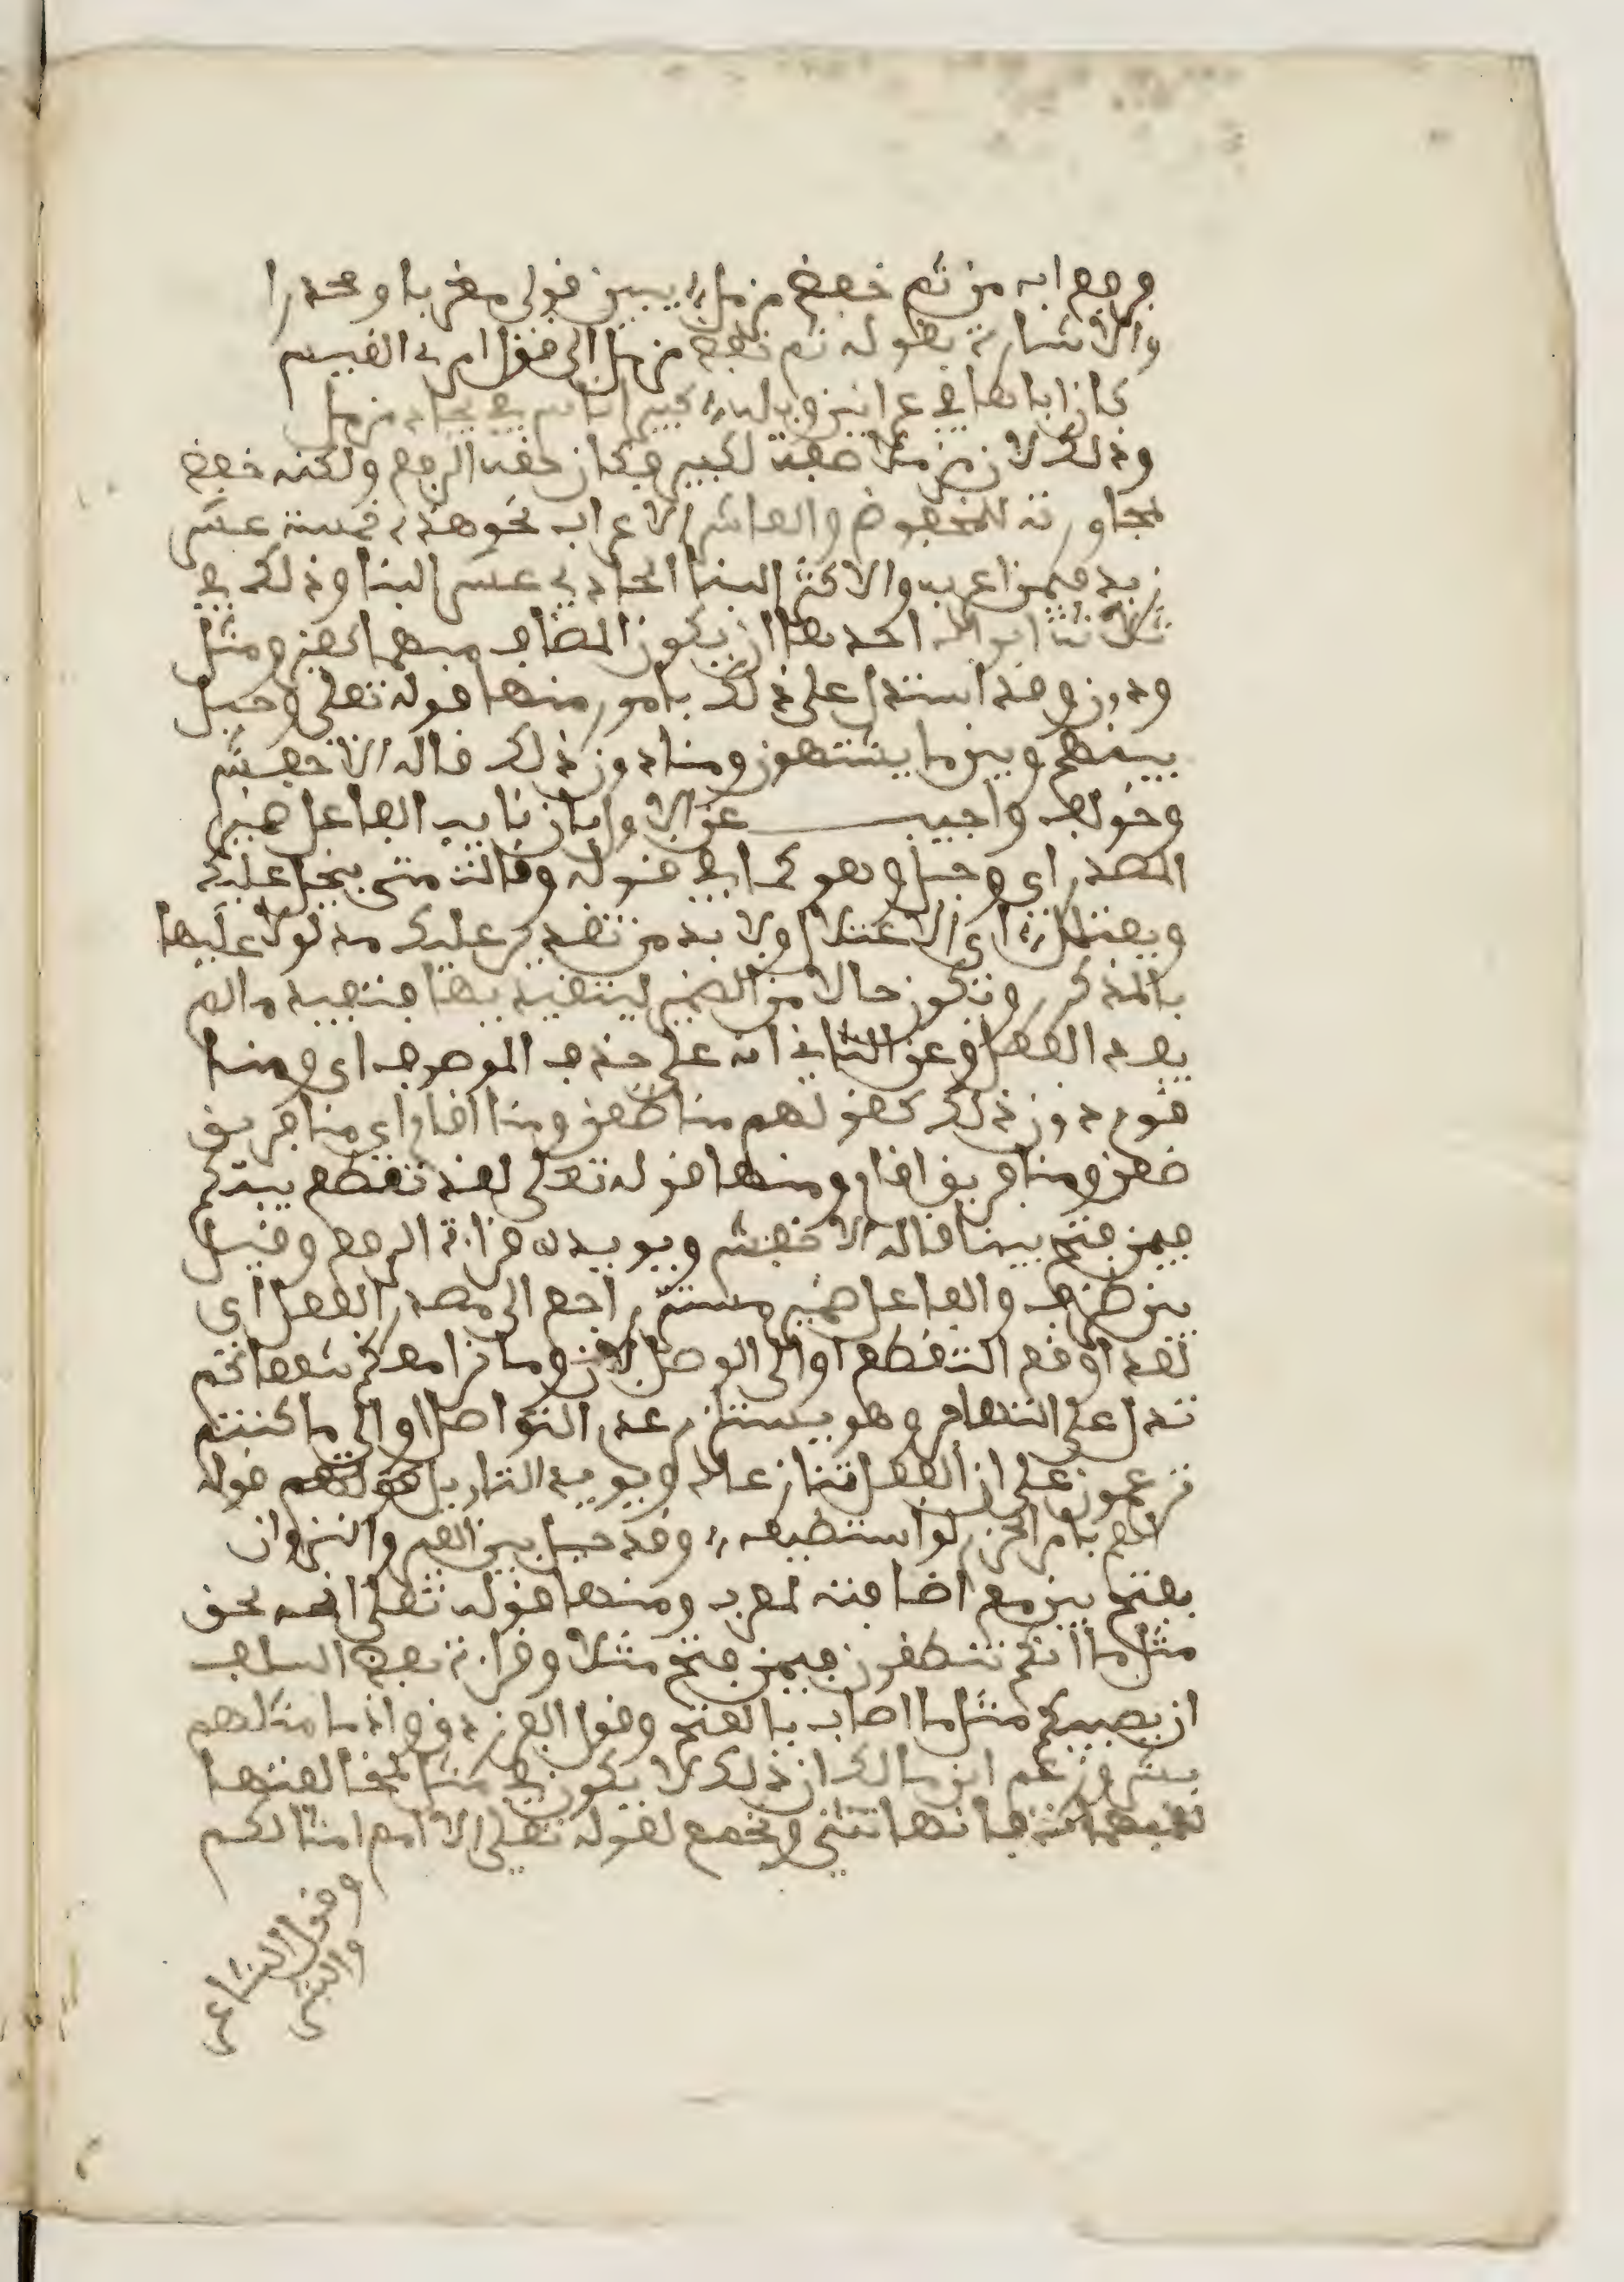 فرفع ابه من ثم خفض مزمل يبين قولي مغربا ومحذرا
والاشارة بقوله ثم خفض مزمل الى قول امرئ القيس
كان ابانا في عرانين وبله كبير اناس في بجاد مزمل
وذلك لان مزملا صفة لكبير فكان حقه الرفع ولكنه خفض
لمجاورته للمخفوض والعاشر الاعراب نحو هذه خمسة عشر
زيد فيمن اعربه والاكثر البنا الحادي عشر البنا وذلك في
ثلاثة ابواب احدها ان يكون المضاف مبهما كغير ومثل
ودون وقد استدل على ذلك بامور منها قوله تعلى وحيل
بينهم وبين ما يشتهون ومنا دون ذلك قاله الاخفش
وخولف واجيب عن الاول بان نايب الفاعل ضمير
المصدر اي وحيل هو كما في قوله وقالت متى يبخل عليك
ويعتلل اي الاعتلال ولا بد من تقدير عليك مدلولا عليها
بالمذكور وتكون حالا من الضمير ليتقيد بها فتفيد ما لم
يفده الفعل وعن الثاني انه على حذف الموصوف اي ومنا
قوم دون ذلك كقولهم منا ظعن ومنا اقام اي منا فريق
ظعن ومنا فريق اقام ومنها قوله تعلى لقد تقطع بينكم
فيمن فتح بينا قاله الاخفش ويويده قراءة الرفع وقيل
بين ظرف والفاعل ضمير مستتر راجع الى مصدر الفعل اي
لقد وقع التقطع او الى الوصل لان وما نرى معكم شفعاءكم
تدل على التهاجر وهو يستلزم عدم التواصل او الى ما كنتم
تزعمون على ان الفعلين تنازعاه ويويد التاويل قوله
اهم بامر الحزم لو استطيعه وقد حيل بين العير والنزوان
بفتح بين مع اضافته لمعرب ومنها قوله تعلى انه لحق
مثل ما انكم تنطقون فيمن فتح مثلا وقراءة بعض السلف
ان يصيبكم مثل ما اصاب بالفتح وقول الفرزدق واذ ما مثلهم
بشر وزعم ابن مالك ان ذلك لا يكون في مثل لمخالفتها
للمبهمات فانها تثنى وتجمع لقوله تعلى الا امم امثالكم
وقول الشاعر
والشر